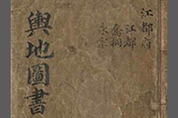 江都府
江都
喬桐
永宗
輿地圖書